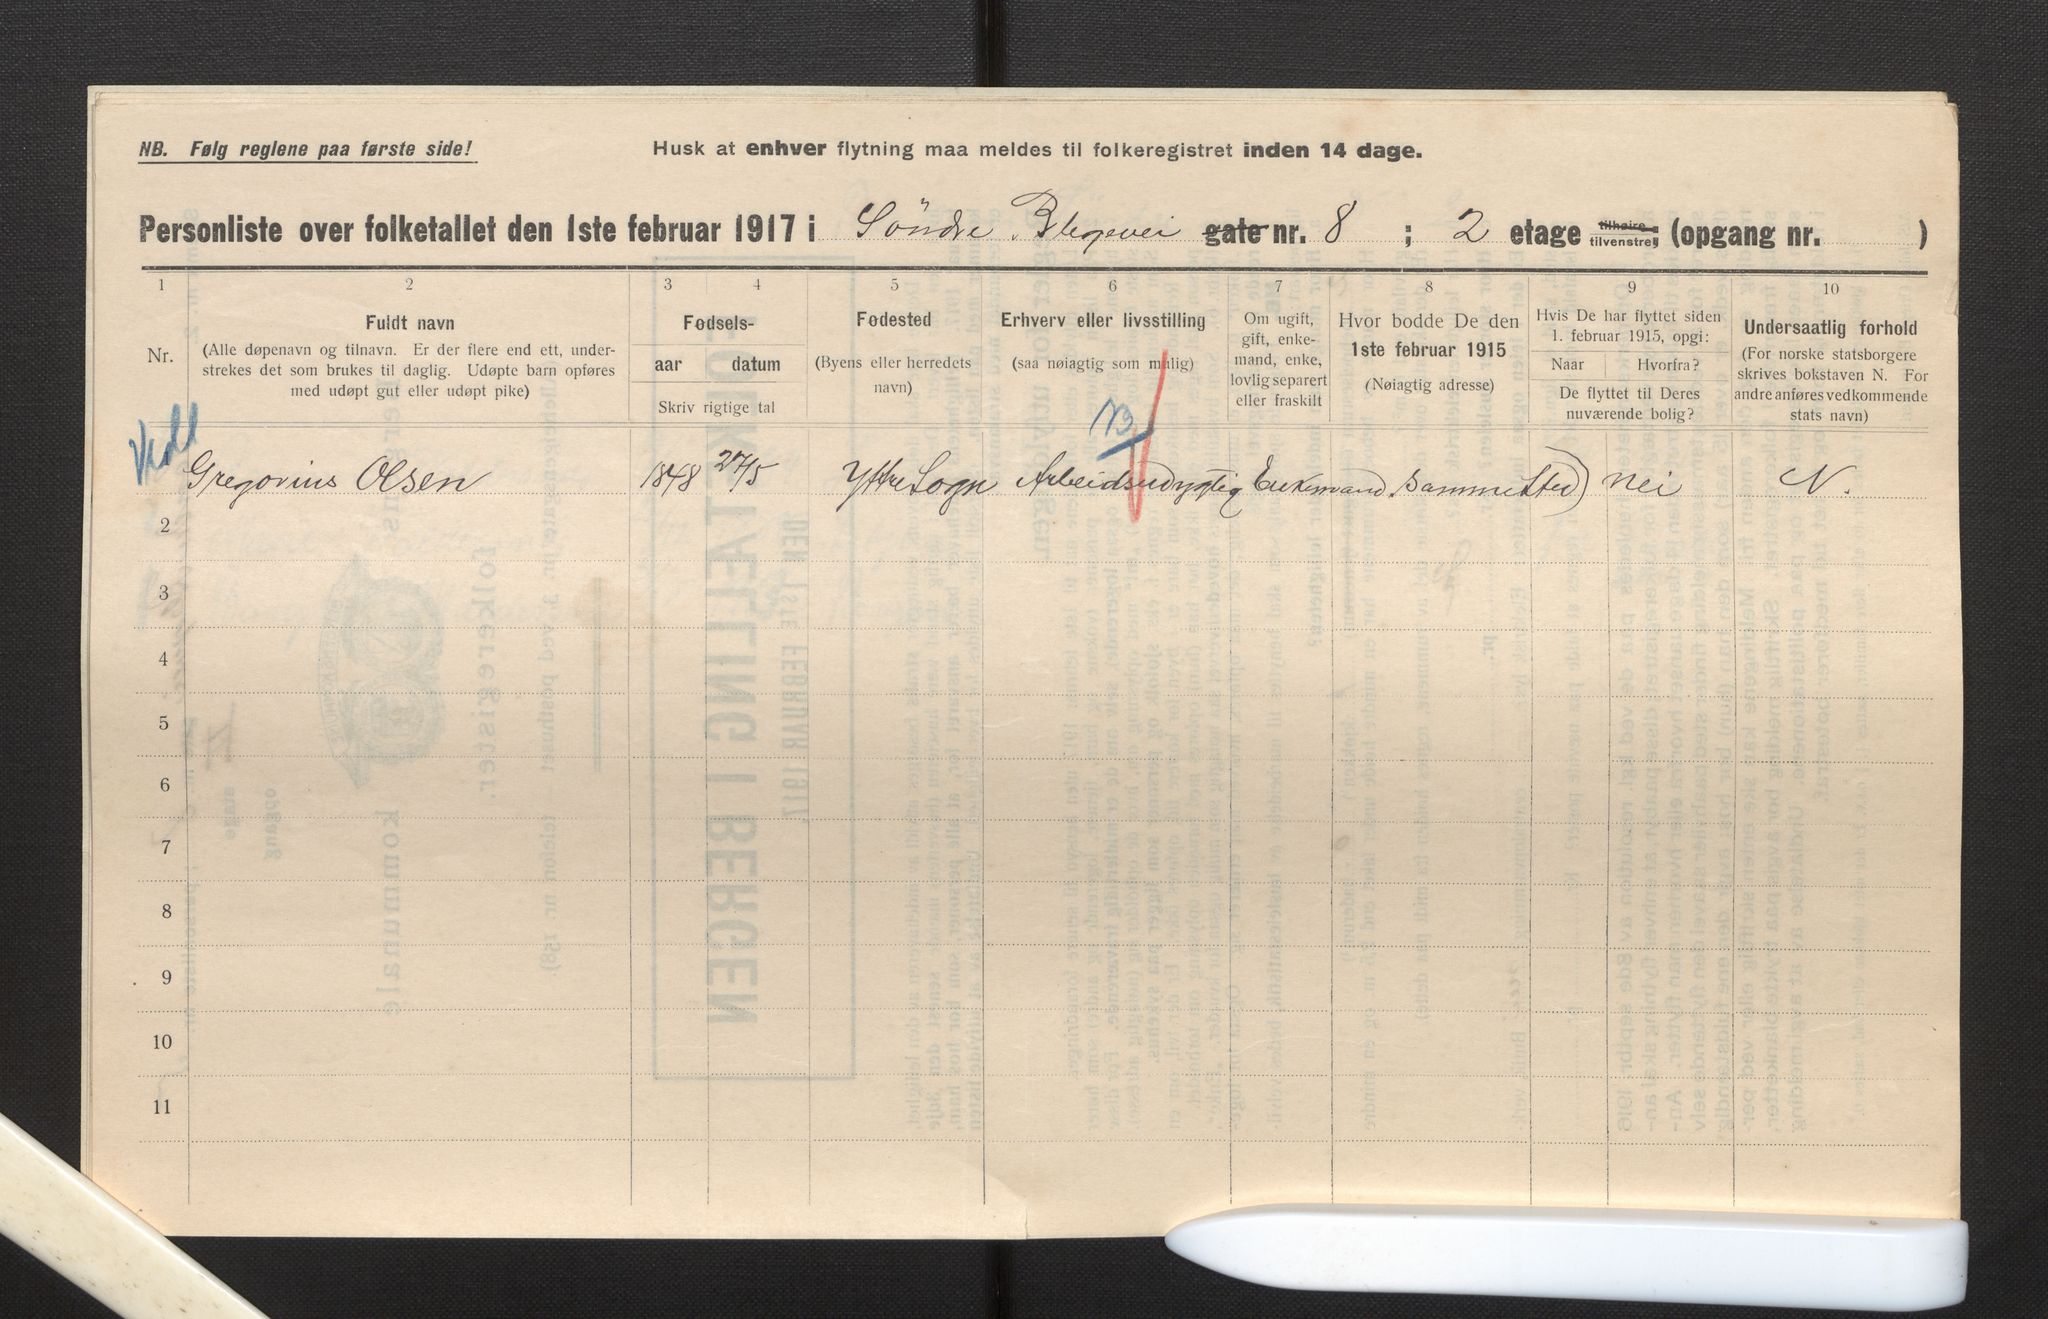 NB. Følg reglene paa første side!
Husk at enhver flytning maa meldes til folkeregistret inden 14 dage.
Personliste over folketallet den 1ste februar 1917 i Söndre Blegevei gate nr. 8 ; 2 etage tilhøire tilvenstre; (opgang nr. )
1 2 3 4 5 6 7 8 9 10
Nr.
Fuldt navn
(Alle døpenavn og tilnavn. Er der flere end ett, under-
strekes det som brukes til daglig. Udøpte barn opføres
med udøpt gut eller udøpt pike)
Fødsels-
aar datum
Skriv rigtige tal
Fødested
(Byens eller herredets
navn)
Erhverv eller livsstilling
(saa nøiagtig som mulig)
Om ugift,
gift, enke-
mand, enke,
lovlig separert
eller fraskilt
Hvor bodde De den
1ste februar 1915
(Nøiagtig adresse)
Hvis De har flyttet siden
1. februar 1915, opgi:
Naar Hvorfra?
De flyttet til Deres
nuværende bolig?
Undersaatlig forhold
(For norske statsborgere
skrives bokstaven N. For
andre anføres vedkommende
stats navn)
Gregorius Olsen 1848 27/5 Yttre Sogn Arbeidsudygtig Enkemand Samme Sted) Nei N.
2
3
4
5
6
7
8
9
10
11